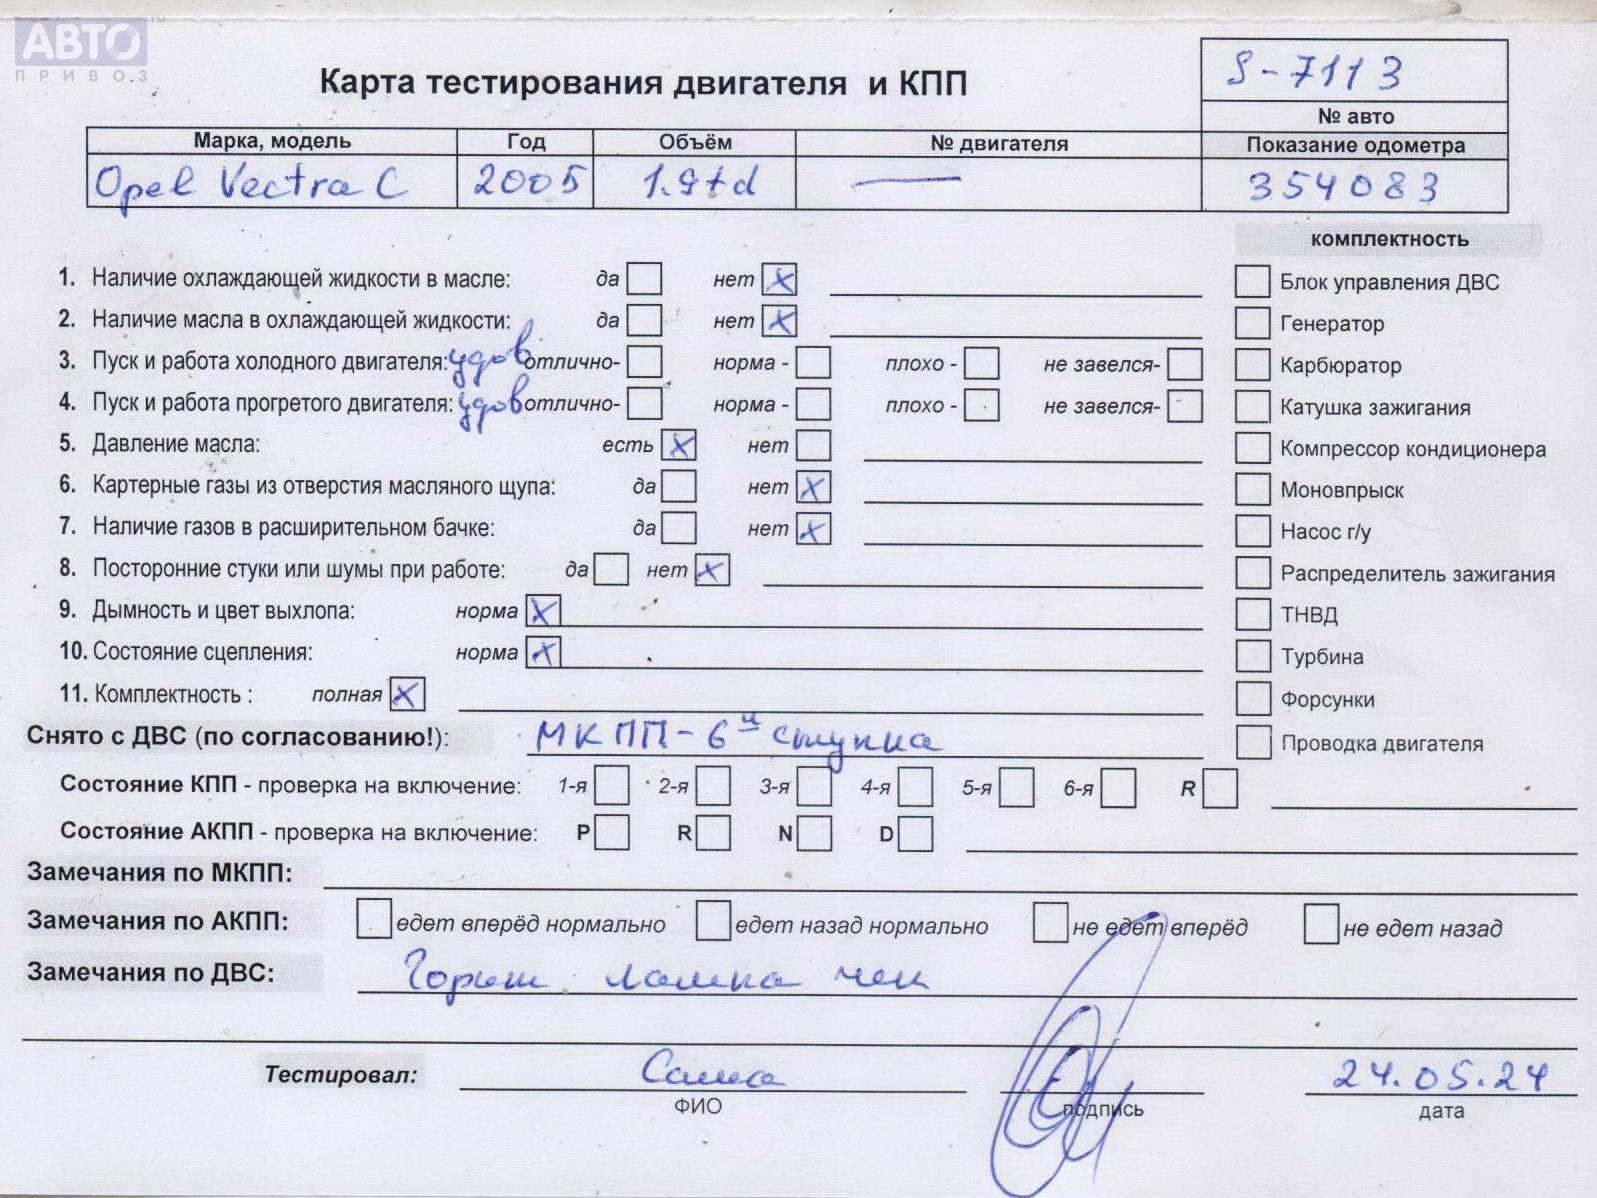 АВТО™
ПРИВОЗ
S-7113
№ авто
Карта тестирования двигателя и КПП
Марка, модель Год Объём № двигателя Показание одометра
Opel Vectra C 2005 1.9td — 354083
комплектность
1. Наличие охлаждающей жидкости в масле: да нет X
Блок управления ДВС
2. Наличие масла в охлаждающей жидкости: да нет X
Генератор
3. Пуск и работа холодного двигателя: удов отлично- норма - плохо - не завелся-
Карбюратор
4. Пуск и работа прогретого двигателя: удов отлично- норма - плохо - не завелся-
Катушка зажигания
5. Давление масла: есть X нет
Компрессор кондиционера
6. Картерные газы из отверстия масляного щупа: да нет X
Моновпрыск
7. Наличие газов в расширительном бачке: да нет X
Насос г/у
8. Посторонние стуки или шумы при работе: да нет X
Распределитель зажигания
9. Дымность и цвет выхлопа: норма X
ТНВД
10. Состояние сцепления: норма X
Турбина
11. Комплектность : полная X
Форсунки
Снято с ДВС (по согласованию!): МКПП - 6й ступка
Проводка двигателя
Состояние КПП - проверка на включение: 1-я 2-я 3-я 4-я 5-я 6-я R
Состояние АКПП - проверка на включение: P R N D
Замечания по МКПП:
Замечания по АКПП: едет вперёд нормально едет назад нормально не едет вперёд не едет назад
Замечания по ДВС: Горит лампа чек
Тестировал: Саша 24.05.24
ФИО подпись дата